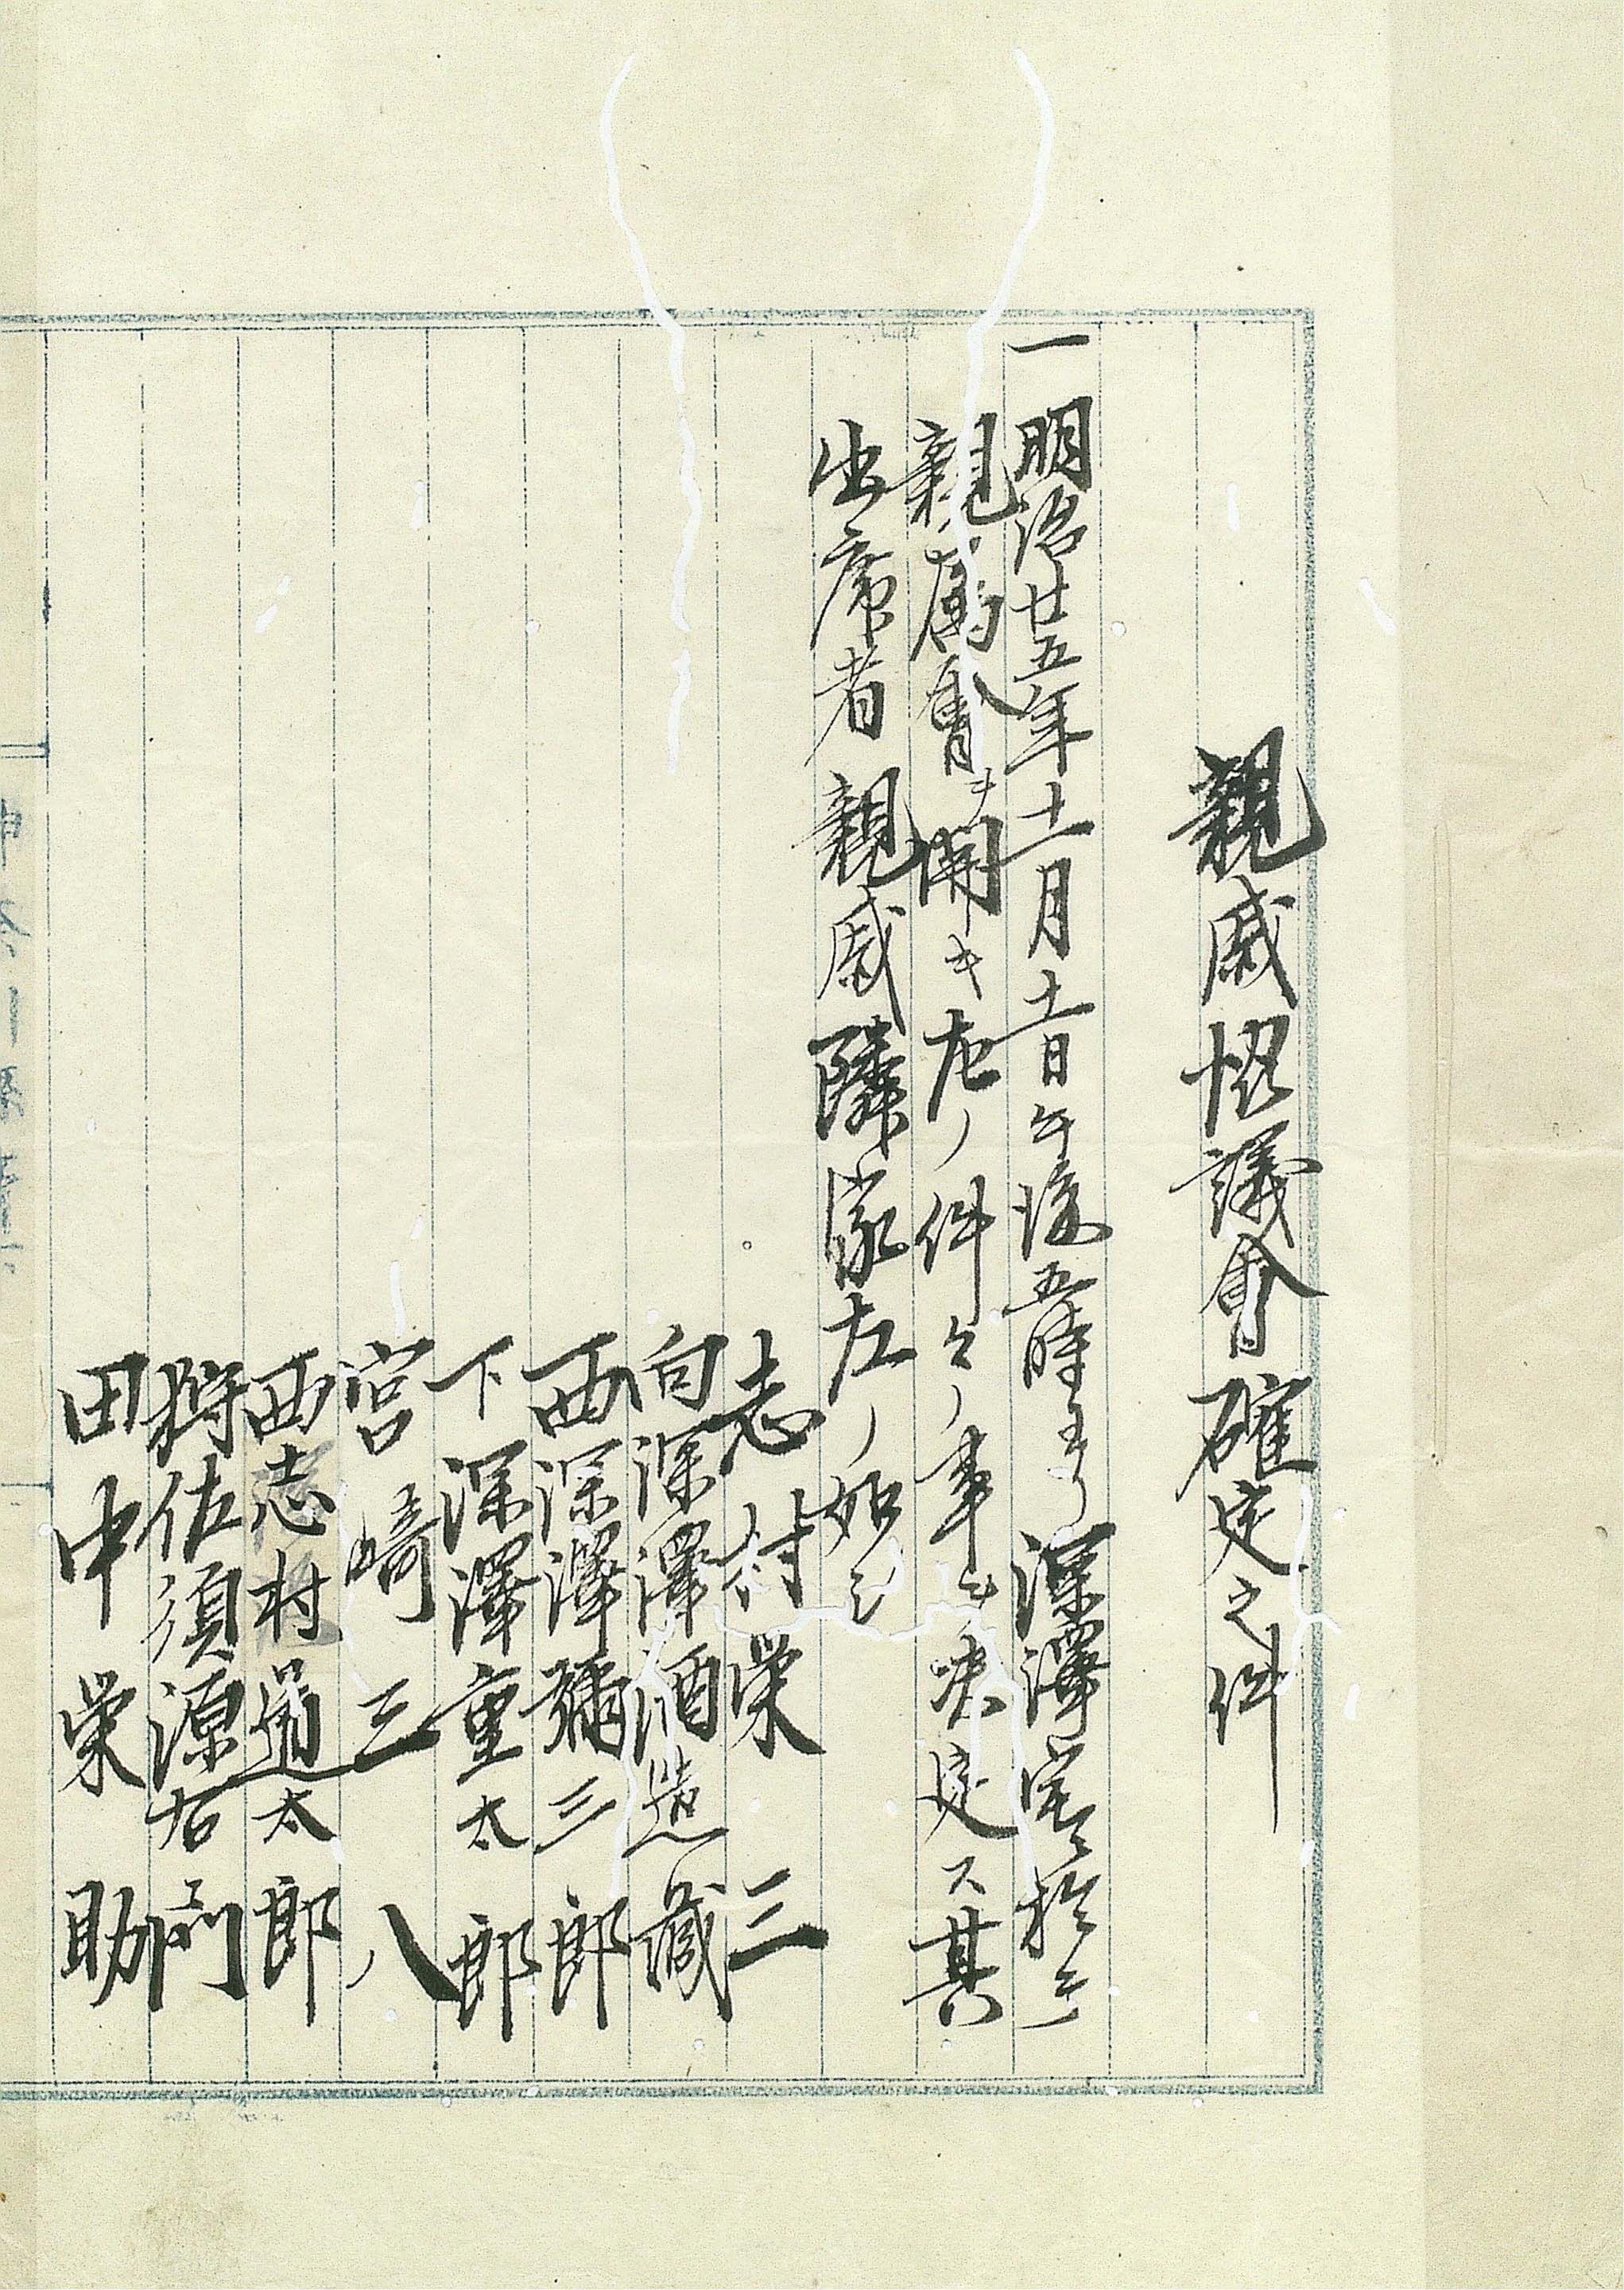 親戚協議會確定之件
一明治廿五年十一月十一日午後五時ヨリ深澤宅ニ於テ
親屬會ヲ開キ左ノ件々ノ事ヲ决定ス其
出席者親戚隣家左ノ如シ
志村栄三
向深澤酒造藏
西深澤彌三郎
下深澤重太郎
宮崎三八
西志村通太郎
狩佐須源右衛門
田中栄助